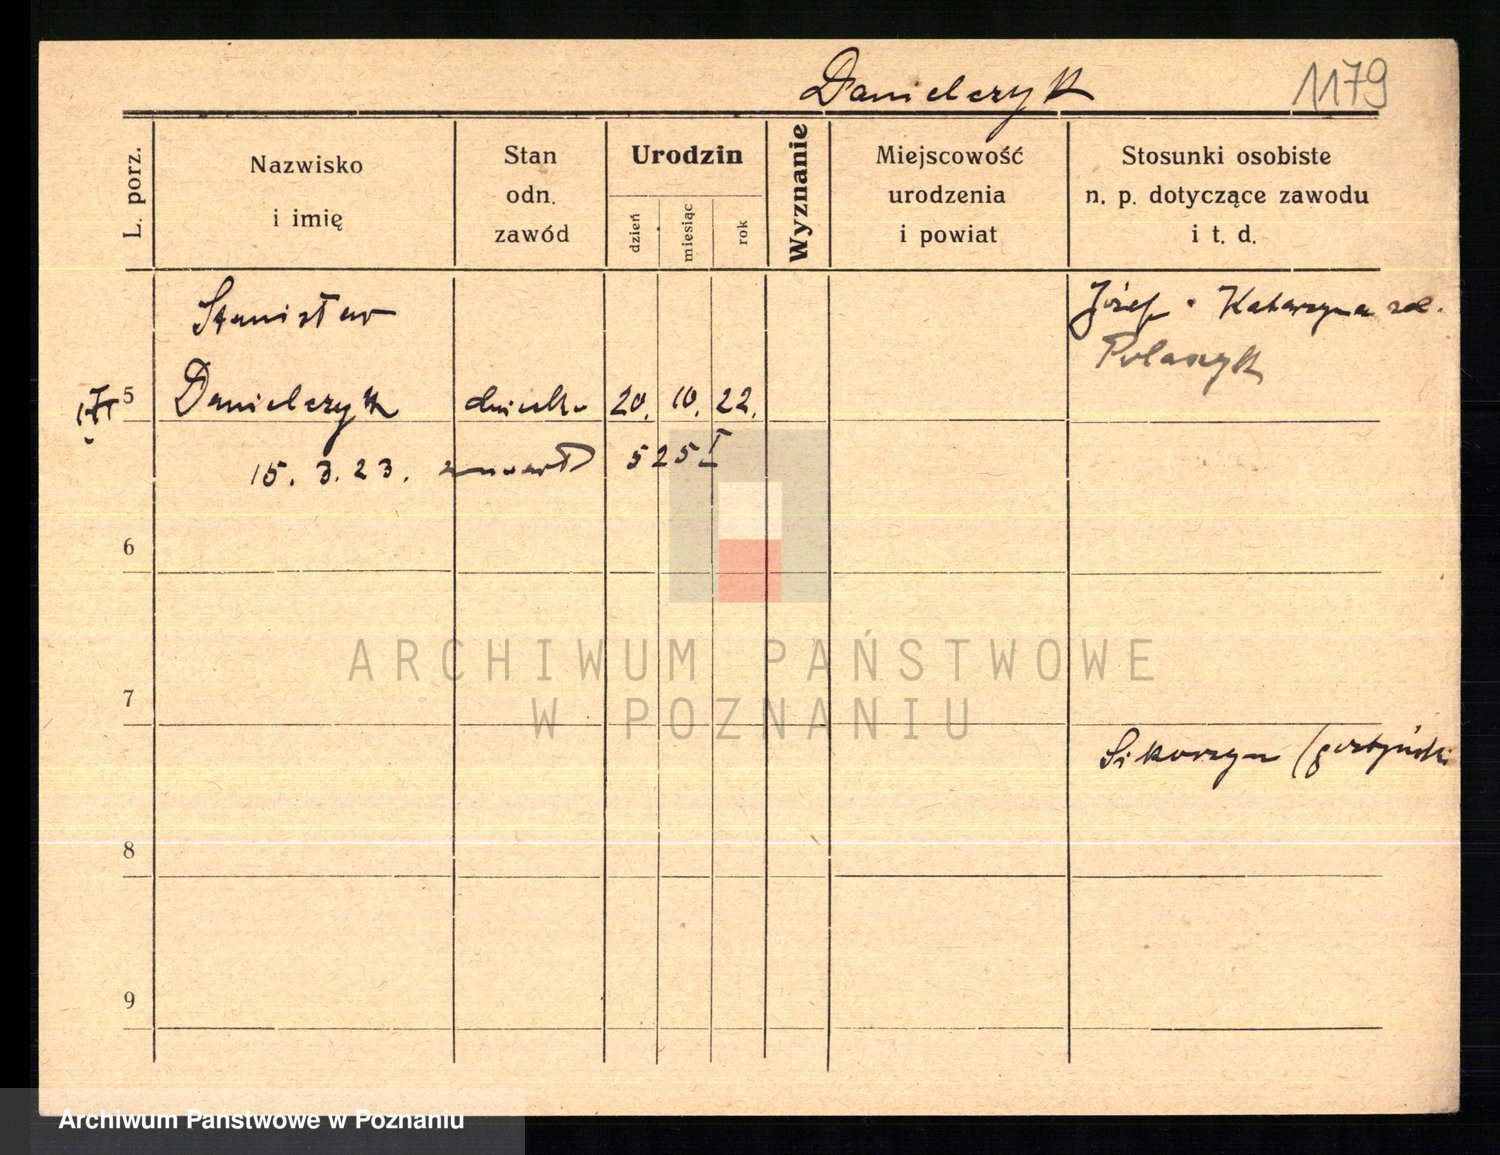 Danielczyk 1179
L. porz.
Nazwisko
i imię
Stan
odn.
zawód
Urodzin
dzień
miesiąc
rok
Wyznanie
Miejscowość
urodzenia
i powiat
Stosunki osobiste
n. p. dotyczące zawodu
i t. d.
Stanisław
Józef Katarzyna
5 Danielczyk dziecko 20. 10. 22.
15. 3. 23. umarł 525 I
6
ARCHIWUM PAŃSTWOWE
W POZNANIU
7
Sikorzyn (gostyński
8
9
Archiwum Państwowe w Poznaniu